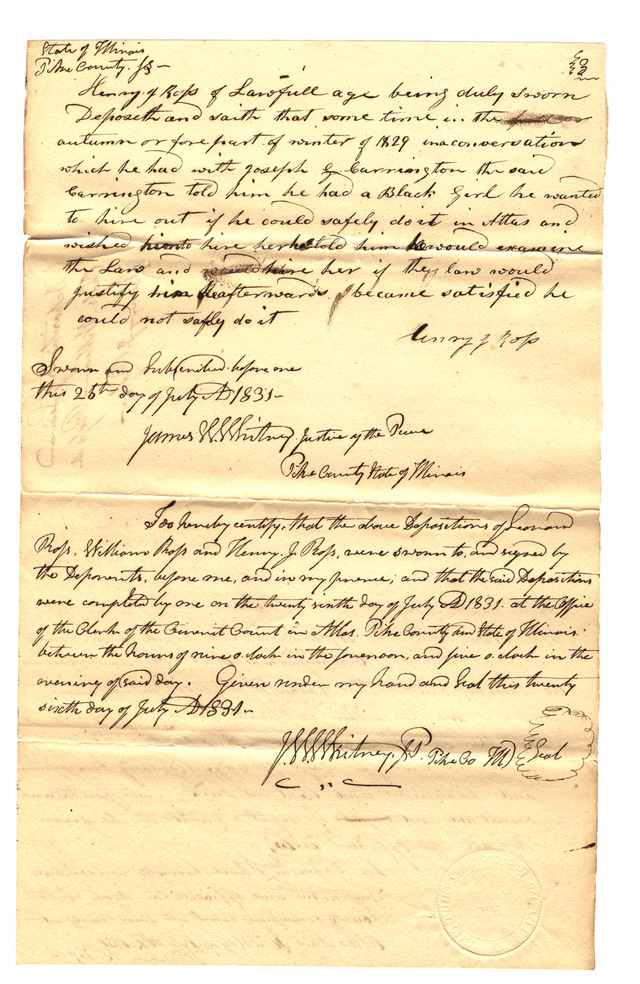 State of Illinois
Pike County. ss
Henry J Ross of Lawfull age being duly sworn
Deposeth and saith that some time in the
autumn or forepart of winter of 1829 in a conversation
which he had with Joseph G Carrington the said
Carrington told him he had a Black Girl he wanted
to hire out if he could safely do it in Atlas and
wished him to hire her he told him he would examine
the Law and would hire her if they law would
justify him afterwards I became satisfied he
could not safly do it
Henry J Ross
Sworn and Subscribed before me
this 26th day of July AD 1831
James W Whitney Justice of the Peace
Pike County State of Illinois
I do hereby certify, that the above Depositions of Leonard
Ross, William Ross and Henry J. Ross, were sworn to, and signed by
the Deponents, before me, and in my presence; and that the said Depositions
were completed by me on the twenty sixth day of July AD 1831. at the Office
of the Clerk of the Circuit Court in Atlas. Pike County and State of Illinois.
between the hours of nine o clock in the forenoon, and five o clock in the
evening of said day. Given under my hand and Seal this twenty
sixth day of July AD 1831
J W Whitney, J.P. Pike Co Ill Seal